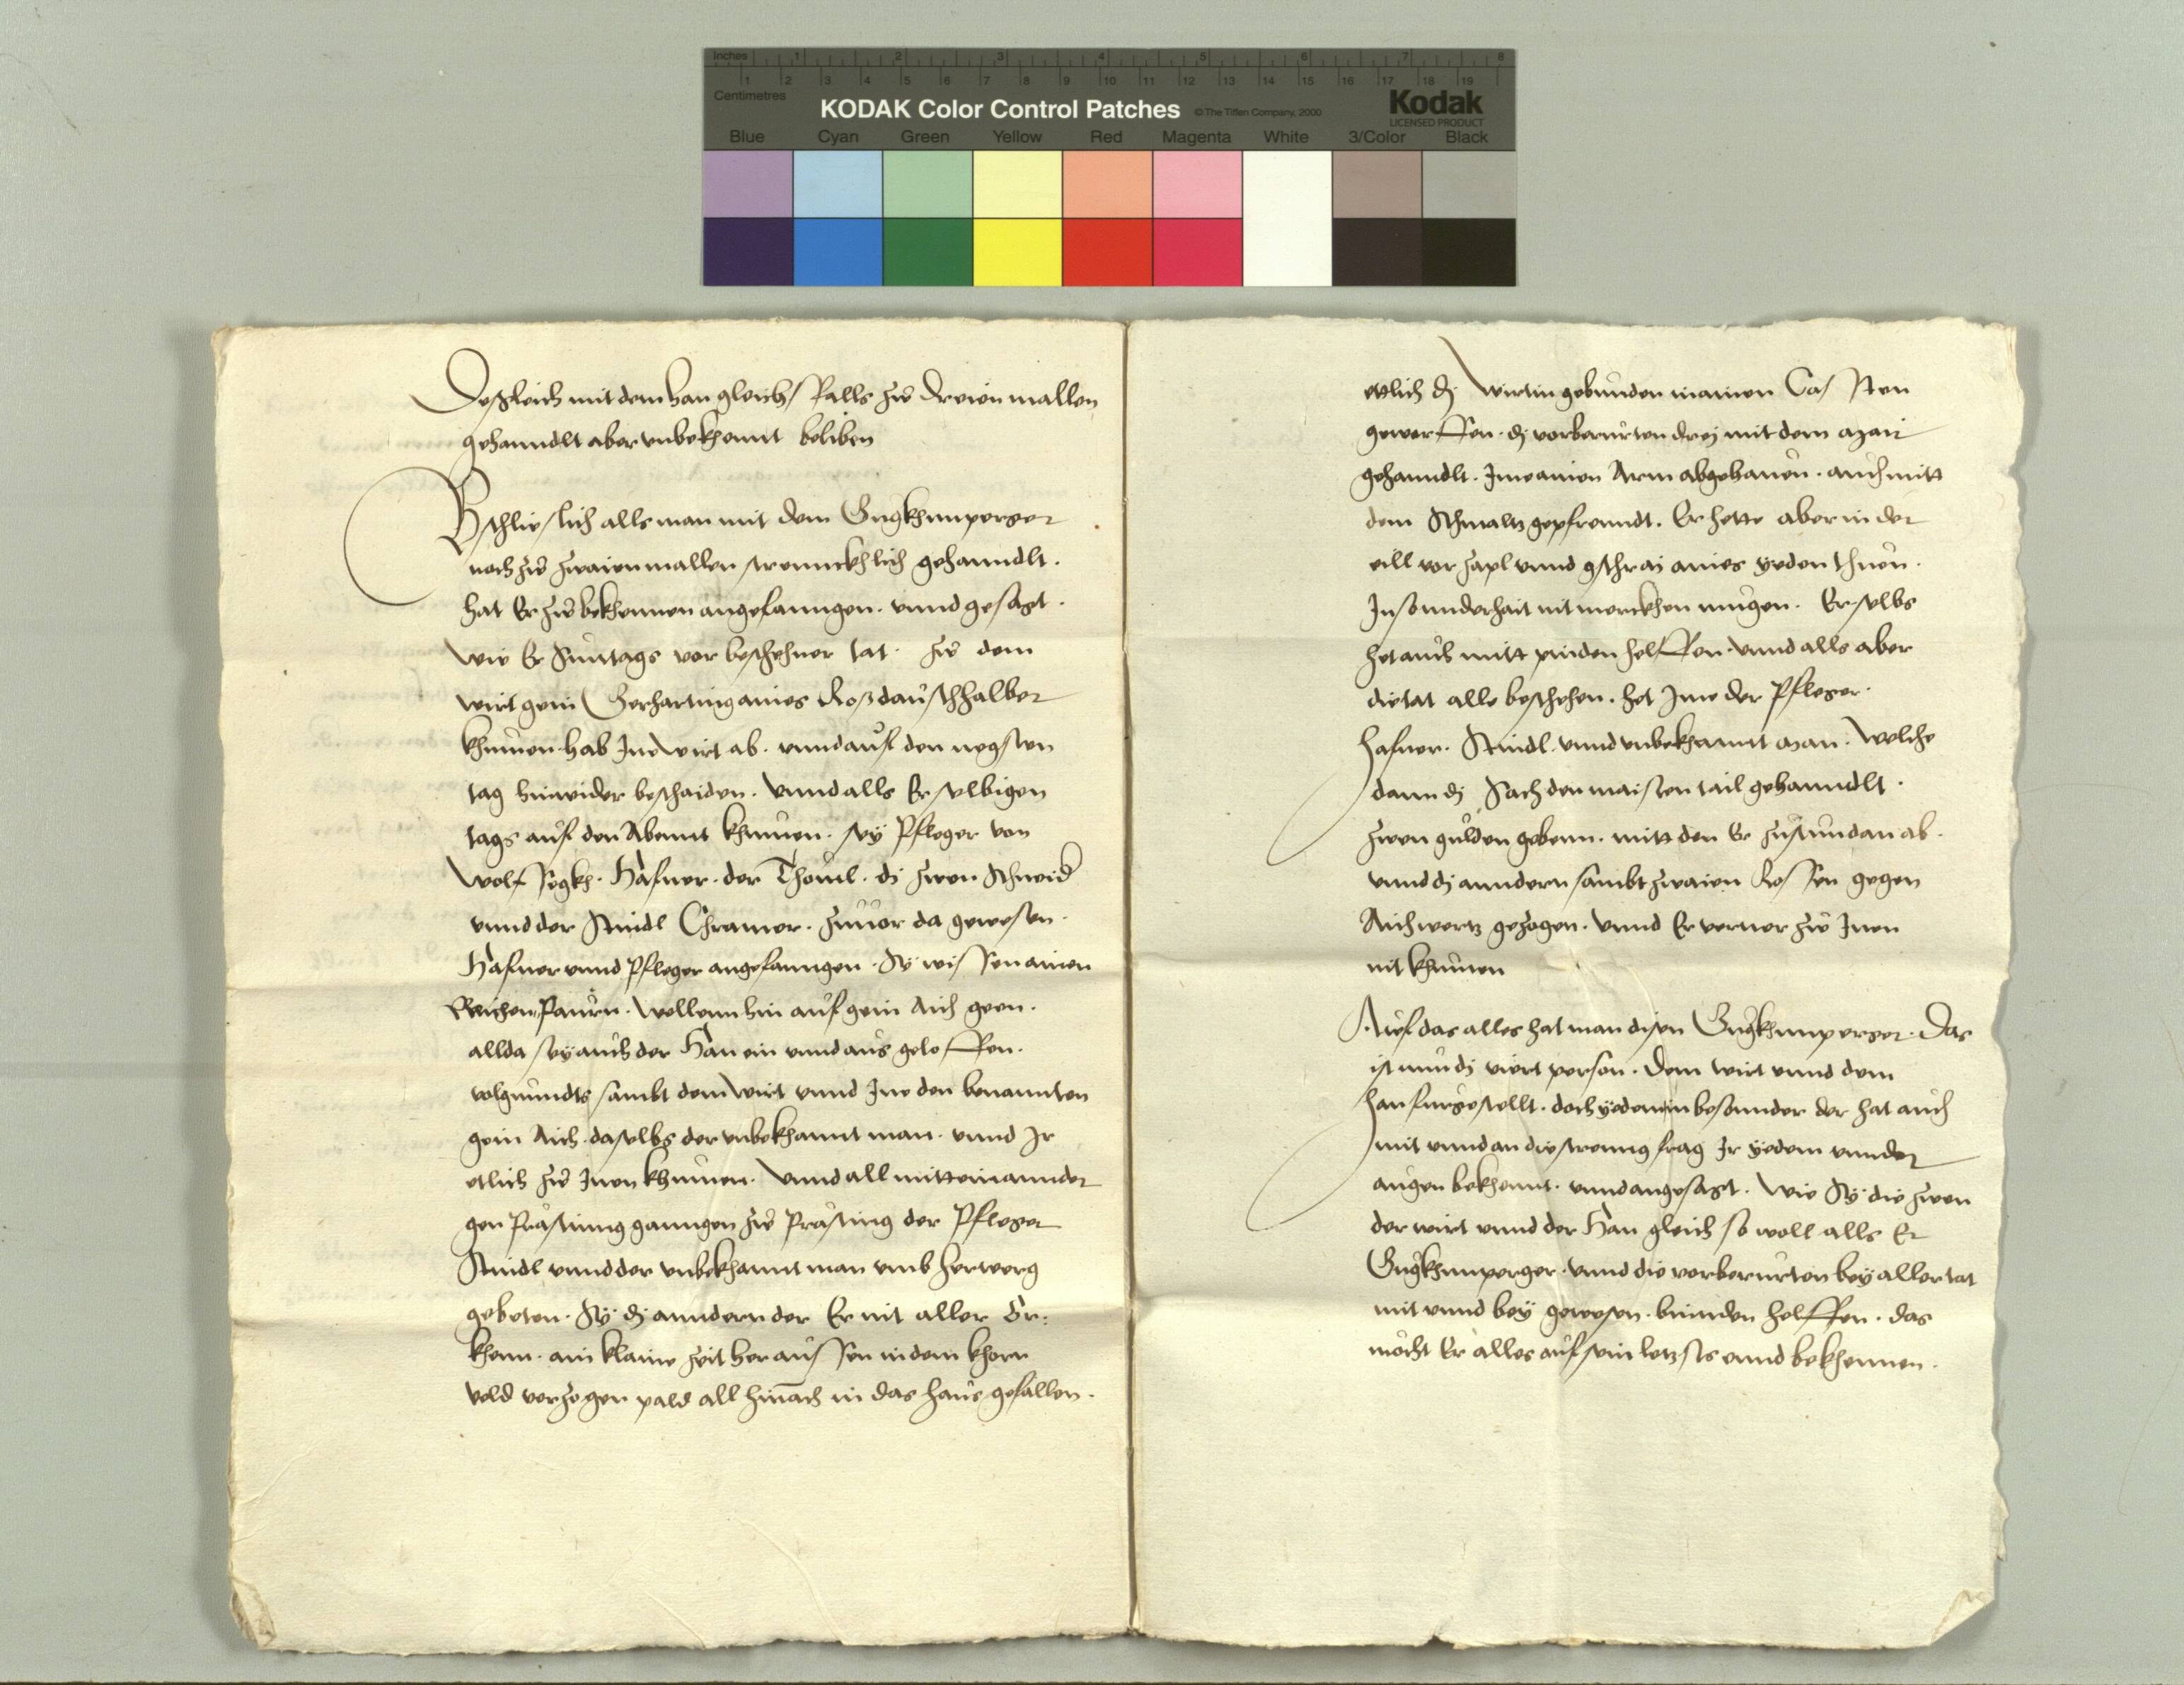 Inches 1 2 3 4 5 6 7 8
1 2 3 4 5 6 7 8 9 10 11 12 13 14 15 16 17 18 19
Centimetres
KODAK Color Control Patches © The Tiffen Company, 2000 Kodak
LICENSED PRODUCT
Blue Cyan Green Yellow Red Magenta White 3/Color Black
Desgleich mit dem han gleichs falls zw dreien mallen
gehanndlt aber unbekhennt beliben
Bschlieslich alls man mit dem Gugkhumperger
noch zw zwaien mallen strennckhlich gehanndlt.
hat Er zw bekhennen angefanngen. unnd gesagt.
wie Er Suntags vor beschehner tat. zw dem
wirt gein Gerharting aines Rosdausch halber
khumen. hab Ine wirt ab. unnd auf den negsten
tag hinwider beschaiden. Unnd alls Er selbigen
tags auf den Abennt khumen. sey Pfleger von
Wolfsegkh. Hafner. der Thoml. di zwen Schneid
unnd der Stindl Chramer. zuuor da gewesen.
Hafner unnd Pfleger angefanngen. Sy wissen ainen
Reichen Paurn. wellenn hin auf gein Aich geen.
allda sey auch der Han ein unnd aus geloffen.
volgnundts sambt dem wirt unnd Ine den benannten
gein Aich. daselbs der unbekhannt man. unnd Ir
etlich zw Inen khumen. Unnd all mitteinannder
gen Prästing ganngen zw Prästing der Pfleger
Stindl unnd der unbekhannt man umb herwerg
gebeten. Sy di anndern der Er nit aller Er-
khenn. ain klaine zeit heraussen in dem khorn
veld verzogen pald all hinach in das haus gefallen.
ettlich di Wirtin gebunden in ainen Casten
geworffen. di vorberurten drej mit dem man
gehanndlt. Ime ainen Arm abgehauen. auch mitt
dem Schmaltz geprenndt. Er hette aber in der
eill vor zapl unnd gschraj aines yeden thuen.
Insonnderhait nit merckhen mugen. Er selbs
het auch mitt pinden helffen. unnd alls aber
die tat alle beschehen. het Ime der Pfleger.
hafner. Stindl. unnd unbekhannt man. Welche
dann di Sach den maisten tail gehanndlt.
zwen gulden gebenn. mitt den Er zustundan ab.
unnd di anndern sambt zwaien Rossen gegen
Aichwertz gezogen. unnd Er verner zw Inen
nit khumen
Auf das alles hat man disen Gugkhumperger. Das
ist nun di viert person. dem wirt unnd dem
han furgestellt. doch yedem in besonnder der hat auch
mit unnd an die strenng frag Ir yedem unnder
augen bekhennt. unnd angesagt. Wie Sy die zwen
der wirt unnd der Han gleich so woll alls Er
Gugkhumperger. unnd die vorberurten bey aller tat
mit unnd bey gewesen. binnden helffen. das
mocht Er alles auf sein letzsts ennd bekhennen.